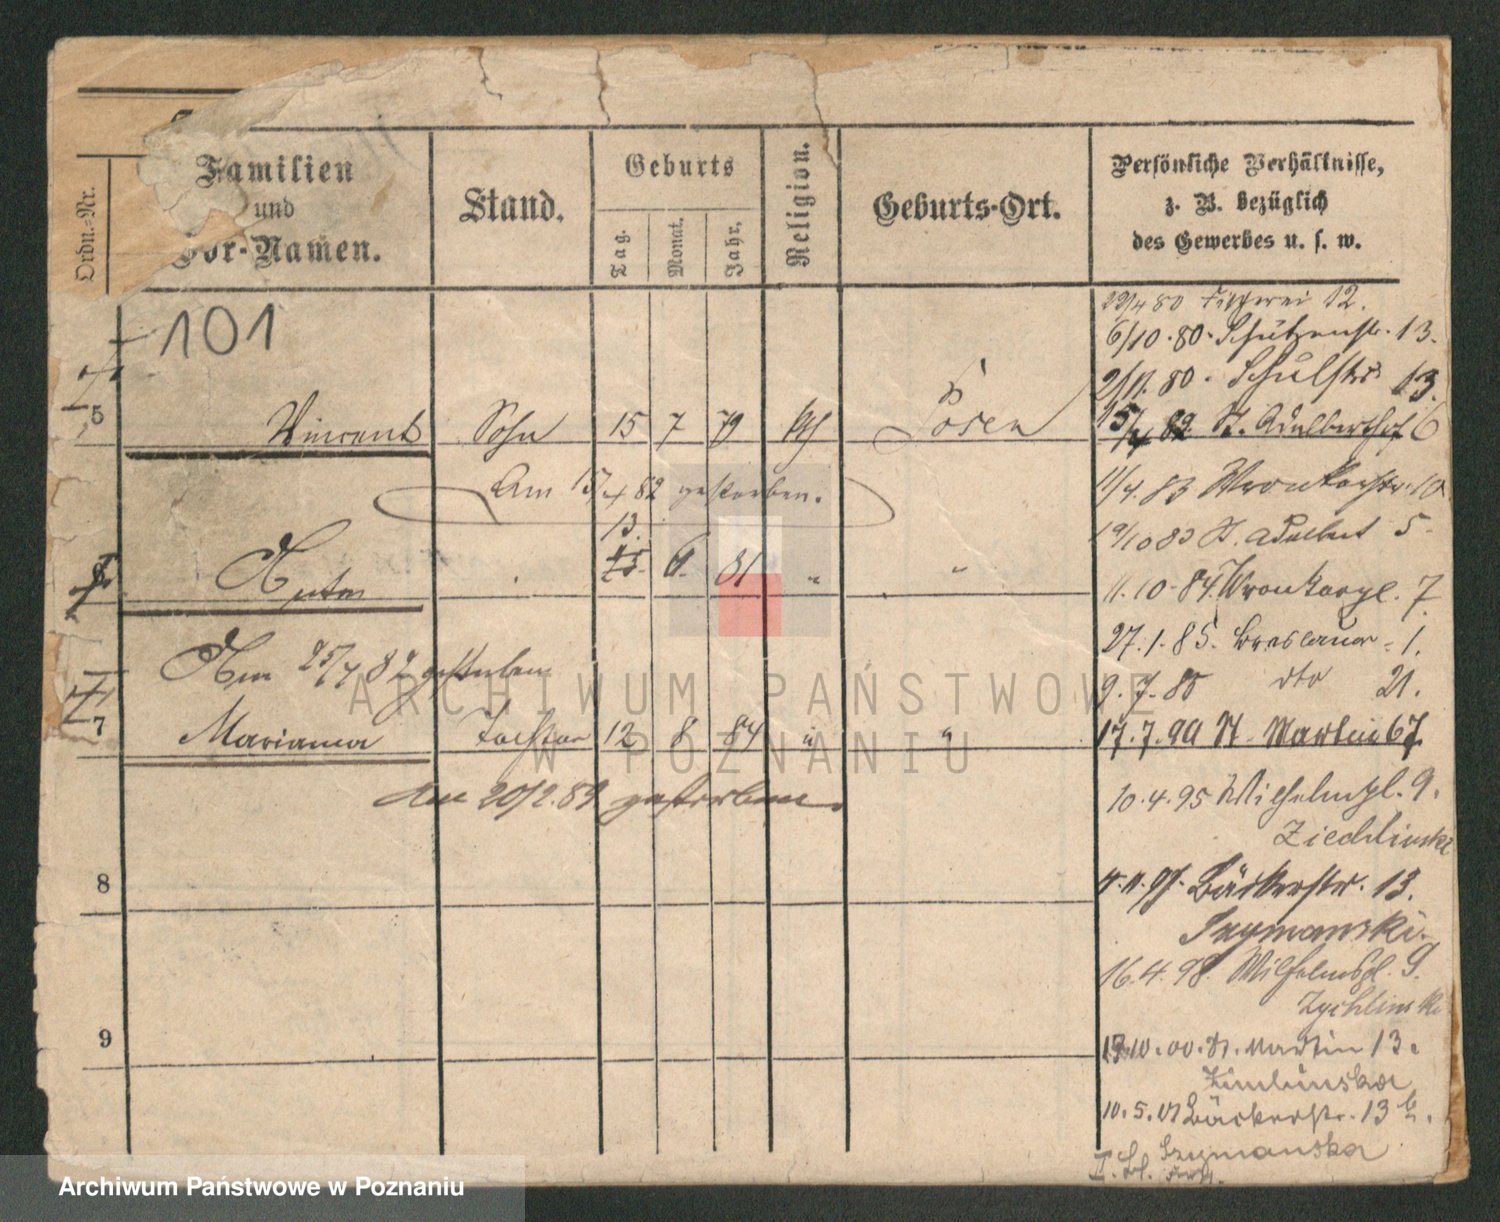 Ordn.-Nr.
Familien
und
Vor-Namen.
Stand.
Geburts
Tag.
Monat.
Jahr.
Religion.
Geburts-Ort.
Persönliche Verhältnisse,
z. B. bezüglich
des Gewerbes u. s. w.
101
80 12.
6/10.80. Schützenstr. 13.
2/11.80. Schulstr. 13.
5 Vincent Sohn 15 7 79 Posen
82 St. Adalberthof 6
Am 15/4 82 gestorben.
11/4.83 Wronkerstr. 10
13.
19/10 83 St. Adalbert 5.
6 Anton 15. 6. 81 " "
11.10.84. Wronkerpl. 7.
Am 25/4 82 gestorben
27.1.85. Breslauer 1.
9.7.85 dto 21.
7 Marianna Tochter 12 8 84 " "
17.7.90 St. Martin 67.
Am 20/2.89 gestorben.
10.4.95 Wilhelmspl. 9.
Ziechlinski
8
97. Bäckerstr. 13.
Szymanski.
16.4.98. Wilhelmspl. 9.
Zychlinski
9
10.00. St. Martin 13.
10.5.01 Bäckerstr. 13
Szymanska
ARCHIWUM PAŃSTWOWE
W POZNANIU
Archiwum Państwowe w Poznaniu